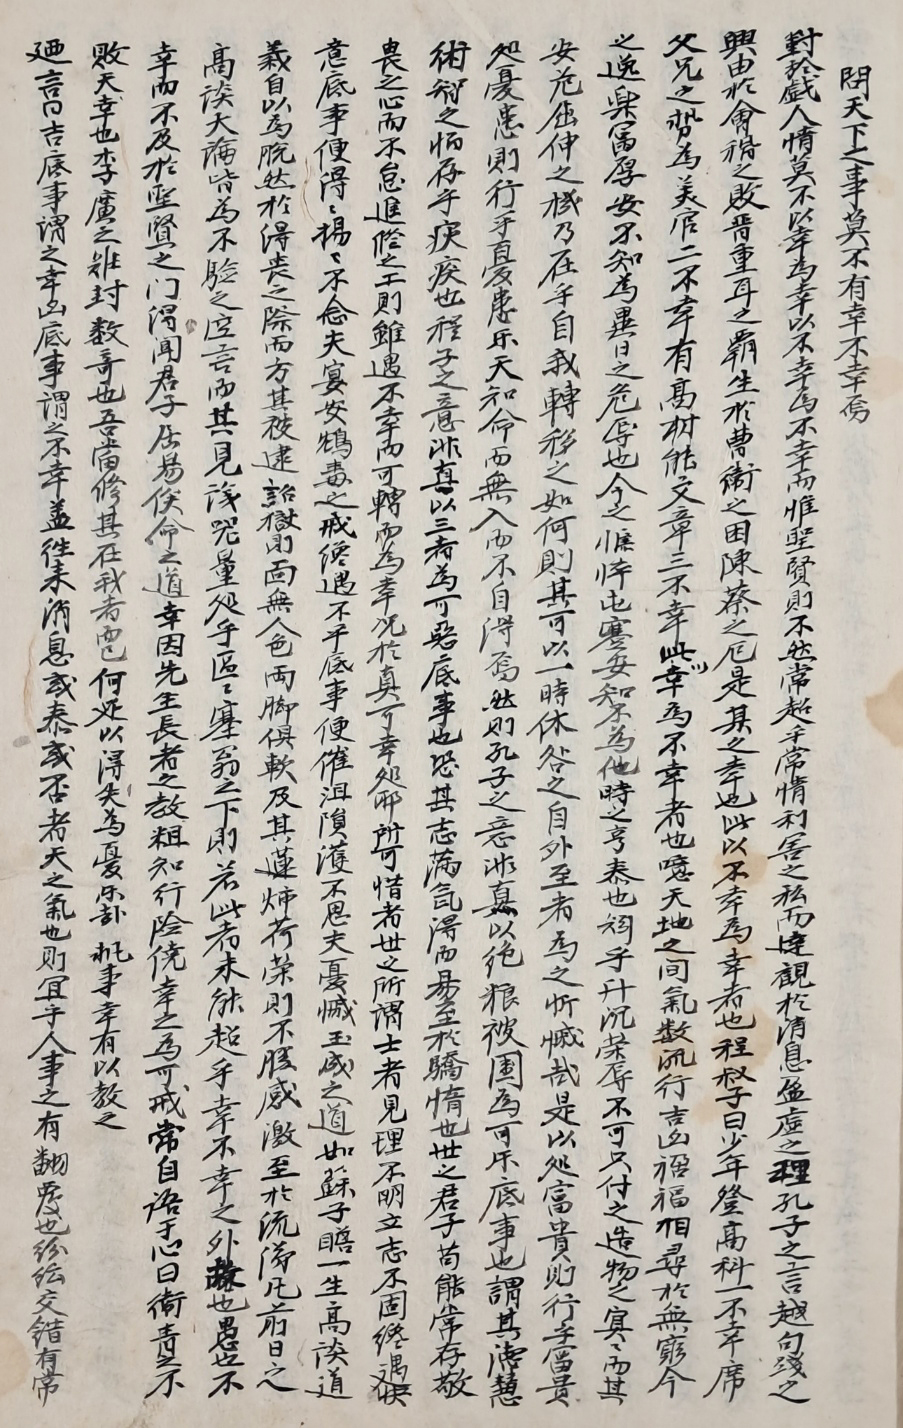 問天下之事莫不有幸不幸焉
對於戲人情莫不以幸爲幸以不幸爲不幸而惟聖賢則不然常超乎常情利害之私而達觀於消息盈虛之理孔子之言越句踐之
興由於會稽之敗晋重耳之霸生於曹衛之困陳蔡之厄是某之幸也此以不幸爲幸者也程叔子曰少年登高科一不幸席
父兄之勢爲美官二不幸有高材能文章三不幸此以幸爲不幸者也噫天地之间氣數流行吉凶禍福相尋於無窮今
之逸樂富厚安不知爲異日之危辱也今之憔悴屯蹇安知不爲他時之亨泰也詞乎升沉荣辱不可只付之造物之冥〻而其
安危屈伸之機乃在乎自我轉移之如何則其可以一時休咎之自外至者爲之忻慽哉是以処富貴則行乎富貴
処憂患則行乎憂患乐天知命而無入而不自淂焉然則孔子之意非真以绝粮被圍爲可乐底事也謂其德慧
術智之恒存乎疢疾也程子之意非真以三者爲可惡底事也恐其志滿氣淂而易至於驕惰也世之君子苟能常存敬
畏之心而不怠進修之工則雖遇不幸而可轉而爲幸况於真可幸処耶所可惜者世之所謂士者見理不明立志不固纔遇快
意底事便得〻揚〻不念夫宴安鴆毒之戒纔遇不平底事便催沮隕濩不思夫憂慽玉成之道如蘇子瞻一生高談道
義自以爲脫然於淂喪之際而方其被逮詔獄則面無人色両脚俱軟及其蓮炬荷荣則不勝感激至於流涕凡前日之
高談大論皆爲不驗之空言而其見識咫量処乎區〻塞翁之下則若此者未能超乎幸不幸之外故也愚也不
幸而不及於聖賢之门淂闻君子居易俟命之道幸因先生長者之教粗知行险僥幸之爲可戒常自語于心曰衛青之不
敗天幸也李廣之难封数奇也吾當修其在我者而已何足以得失爲憂乐卦 執事幸有以教之
廼言曰吉底事謂之幸凶底事謂之不幸盖徃来消息或泰或否者天之氣也則宜乎人事之有翻覆也紛纭交錯有常